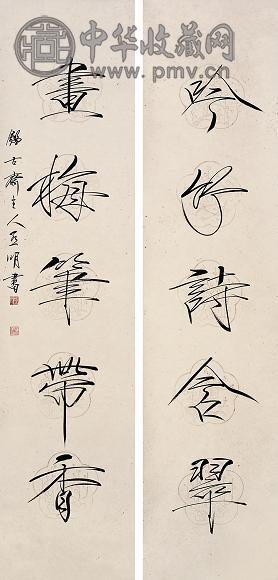 中华收藏网
www.pmv.cn
吟竹詩含翠
畫梅筆帶香
古齋主人亞明書